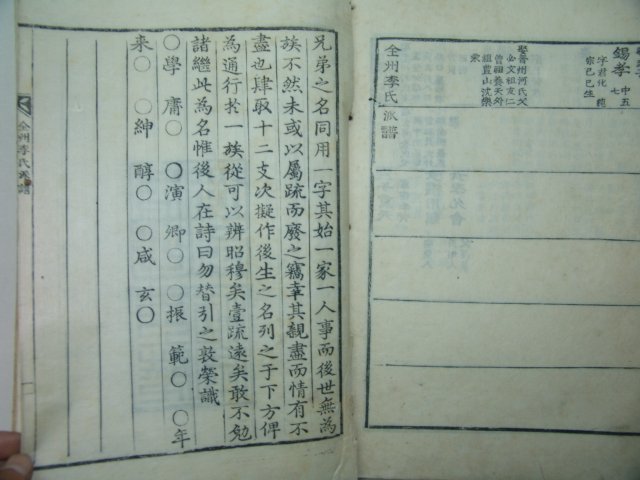 錫孝
字君化
中五
七
宗己巳生
娶晉州河氏父
必文祖友二
曾祖養天外
祖靈山沈樂
來
全州李氏派譜
兄弟之名同用一字其始一家一人事而後世無為
族不然未或以屬疏而廢之竊幸其親盡而情有不
盡也肆取十二支次擬作後生之名列之于下方俾
為通行於一族從可以辨昭穆矣壹疏遠矣敢不勉
諸繼此為名惟後人在詩曰勿替引之敦榮識
○學 庸○ ○演 卿○ ○振 範○ ○年
來○ ○紳 醇○ ○咸 玄○
全州李氏派譜